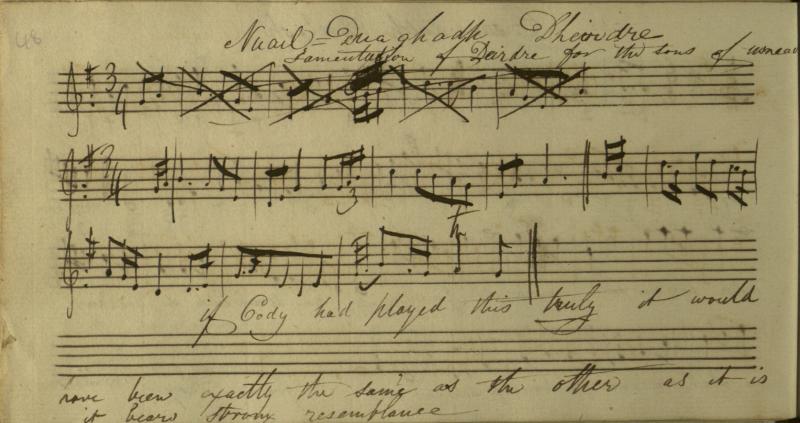 48
Nuail-Duaghadh Dheirdre
Lamentation of Deirdre for the sons of usneach
3
4
3
4
3
tr
if Cody had played this truly it would
have been exactly the same as the other as it is
it bears strong resemblance